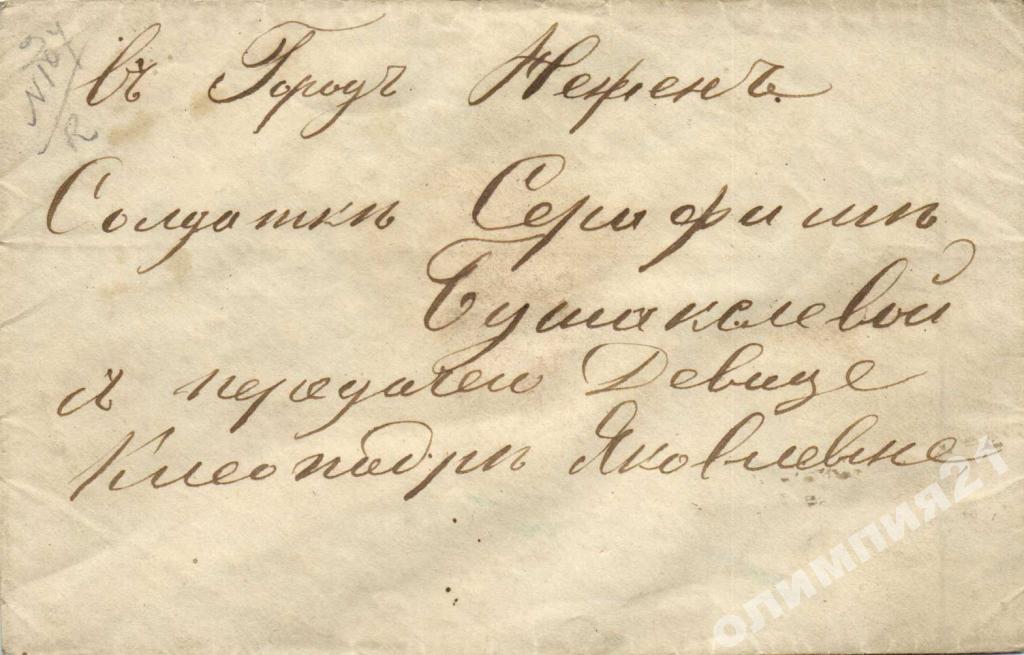 въ Городъ Неженъ
Солдаткѣ Серафимѣ
Бушакелевой
съ передачею Девице
Клеопадрѣ Яковлевне
N164
R
олимпия21